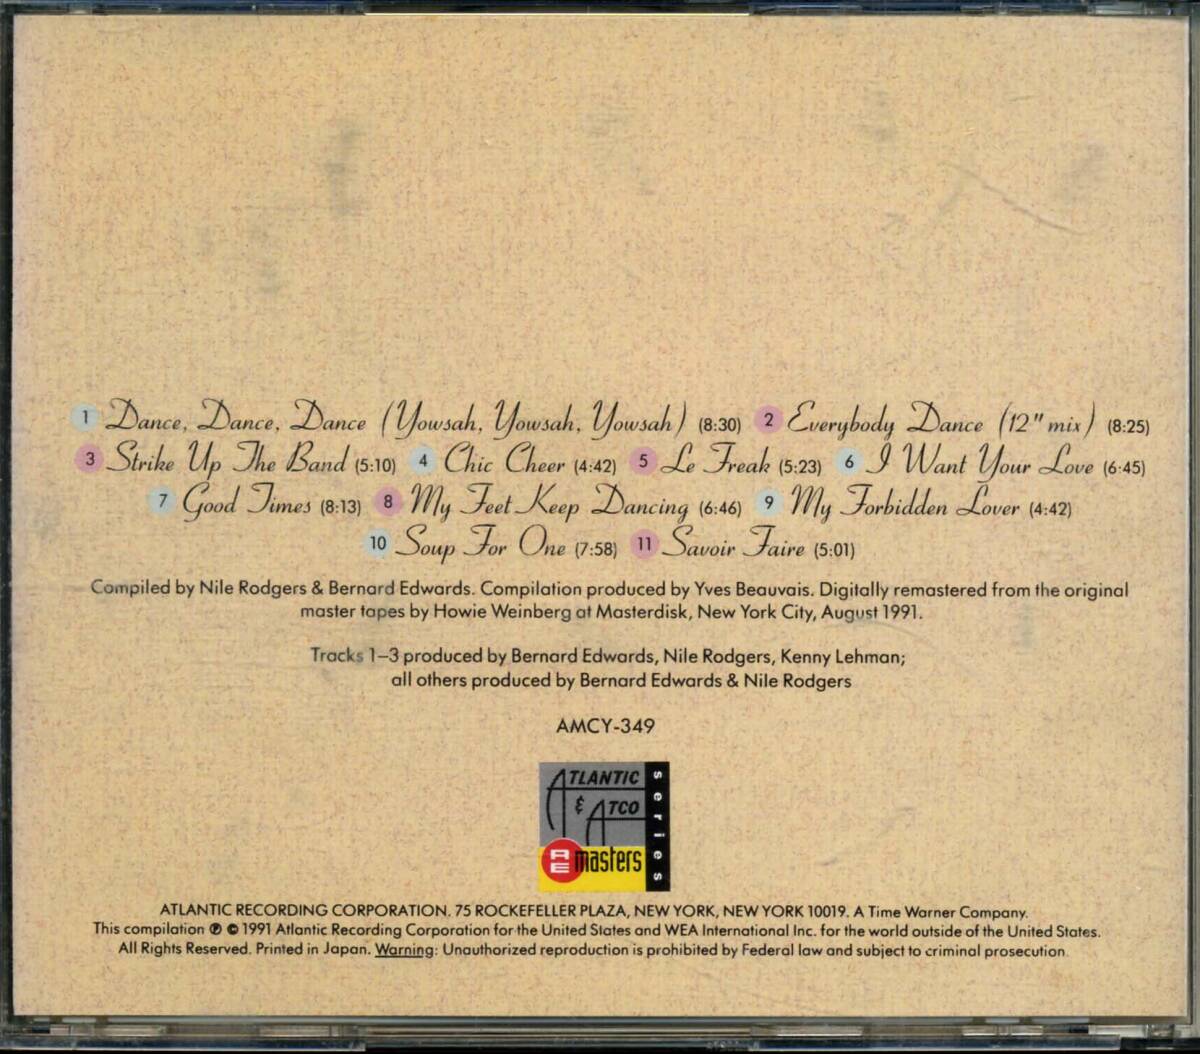 1 Dance, Dance, Dance (Yowsah, Yowsah, Yowsah) (8:30) 2 Everybody Dance (12" mix) (8:25)
3 Strike Up The Band (5:10) 4 Chic Cheer (4:42) 5 Le Freak (5:23) 6 I Want Your Love (6:45)
7 Good Times (8:13) 8 My Feet Keep Dancing (6:46) 9 My Forbidden Lover (4:42)
10 Soup For One (7:58) 11 Savoir Faire (5:01)
Compiled by Nile Rodgers & Bernard Edwards. Compilation produced by Yves Beauvais. Digitally remastered from the original
master tapes by Howie Weinberg at Masterdisk, New York City, August 1991.
Tracks 1–3 produced by Bernard Edwards, Nile Rodgers, Kenny Lehman;
all others produced by Bernard Edwards & Nile Rodgers
AMCY-349
ATLANTIC
& ATCO
RE masters
series
ATLANTIC RECORDING CORPORATION. 75 ROCKEFELLER PLAZA, NEW YORK, NEW YORK 10019. A Time Warner Company.
This compilation ℗ © 1991 Atlantic Recording Corporation for the United States and WEA International Inc. for the world outside of the United States.
All Rights Reserved. Printed in Japan. Warning: Unauthorized reproduction is prohibited by Federal law and subject to criminal prosecution.